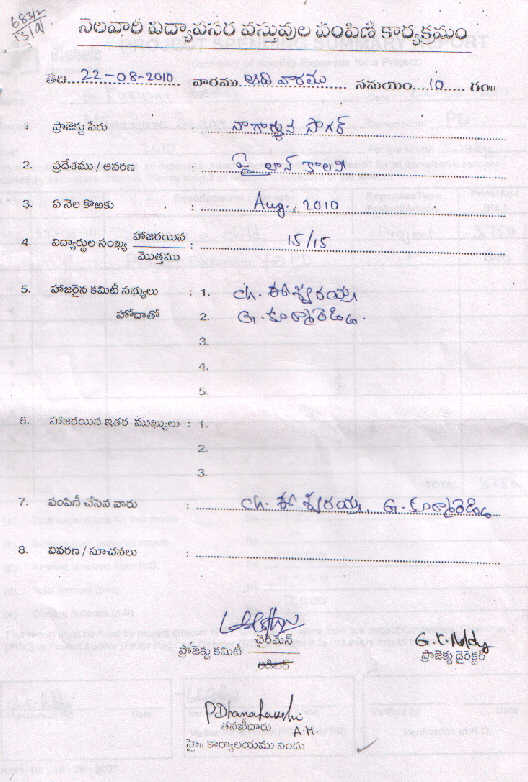 6832
13/9/
నెలవారీ విద్యావసర వస్తువుల పంపిణీ కార్యక్రమం
తేది 22-08-2010 వారము ఆదివారము సమయం 10 గం||
1. ప్రాజెక్టు పేరు : నాగార్జున సాగర్
2. ప్రదేశము / ఆవరణ : పైలాన్ కాలనీ
3. ఏ నెల కొఱకు : Aug., 2010
4. విద్యార్థుల సంఖ్య హాజరయిన : 15/15
మొత్తము
5. హాజరైన కమిటీ సభ్యులు : 1. Ch. ఈశ్వరయ్య
హోదాతో 2. G.
3.
4.
5.
6. హాజరయిన ఇతర ముఖ్యులు : 1.
2.
3.
7. పంపిణీ చేసిన వారు : Ch. ఈశ్వరయ్య, G.
8. వివరణ / సూచనలు :
ఛైర్మెన్
ప్రాజెక్టు కమిటీ
G.K. Reddy
ప్రాజెక్టు డైరెక్టర్
P. Dhanalakshmi
తనిఖీదారు A.M.
హైద. కార్యాలయము నందు